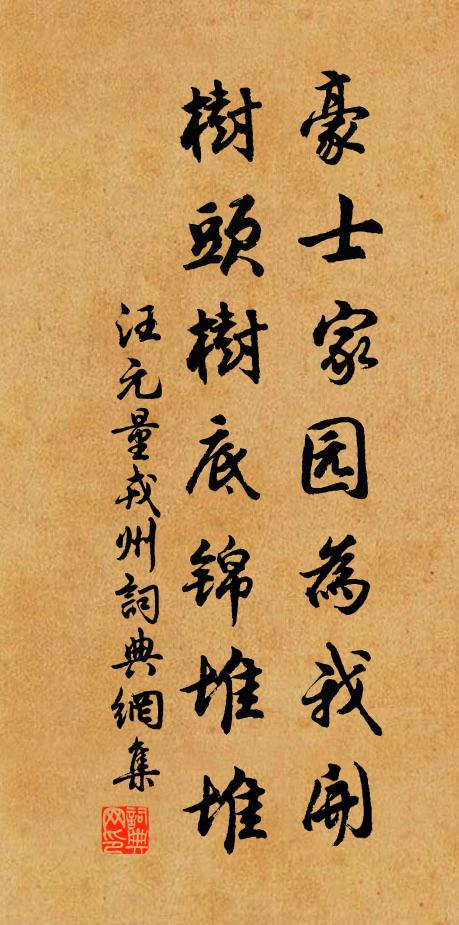 豪士家园為我開
樹頭樹底錦堆堆
汪元量戎州詞典網集
詞典網印